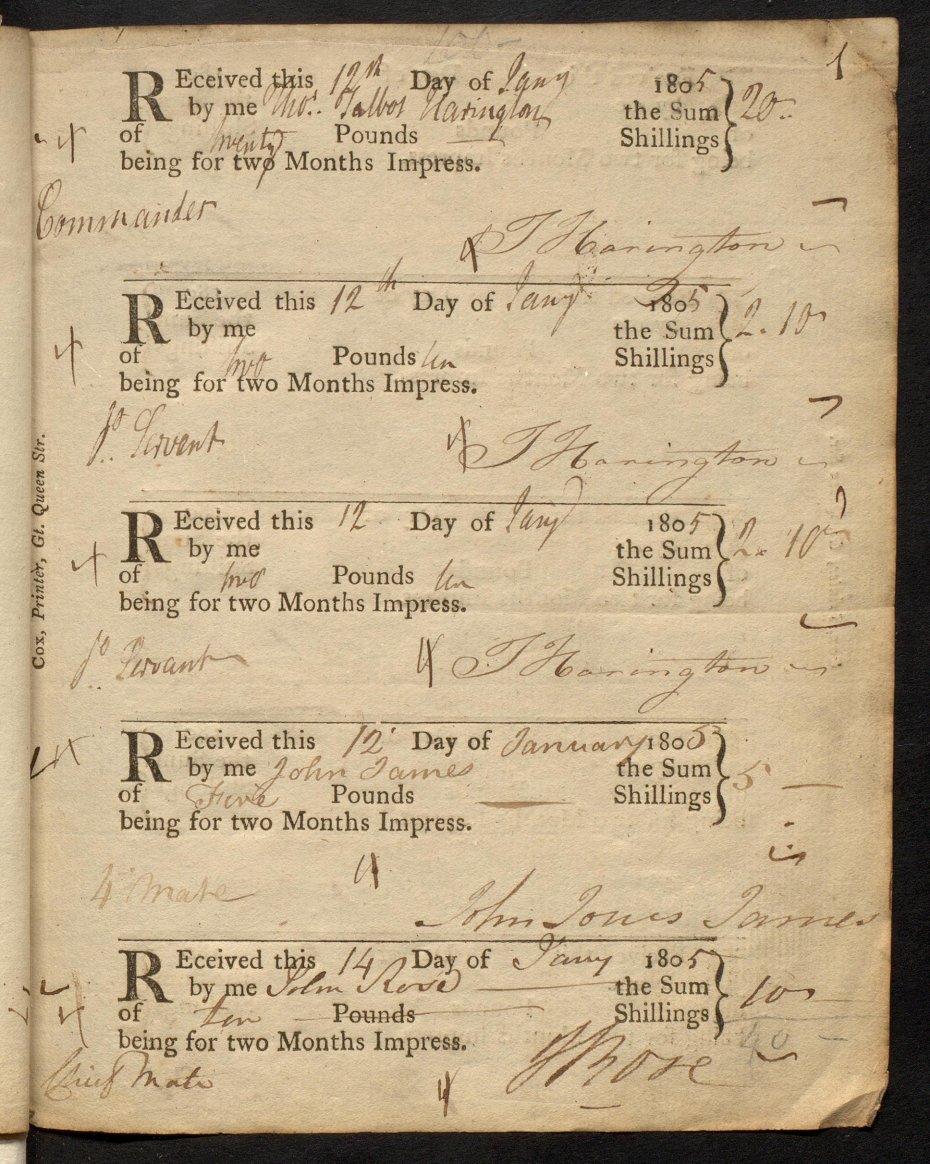 1
Received this 12th Day of Jany 1805
by me Thos. Talbot Harington the Sum 20
of twenty Pounds — Shillings
being for two Months Impress.
Commander
T Harington
Received this 12th Day of Jany 1805
by me the Sum 2. 10
of two Pounds ten Shillings
being for two Months Impress.
Do. Servant
T Harington
Received this 12 Day of Jany 1805
by me the Sum 2. 10
of two Pounds ten Shillings
being for two Months Impress.
Do. Servant
T Harington
Received this 12 Day of January 1805
by me John James the Sum 5 —
of Five Pounds — Shillings
being for two Months Impress.
4 Mate
John James
Received this 14 Day of Jany 1805
by me John Rose — the Sum 10
of ten — Pounds — Shillings
40 —
being for two Months Impress.
Chief Mate
J Rose
Cox, Printer, Gt. Queen Str.